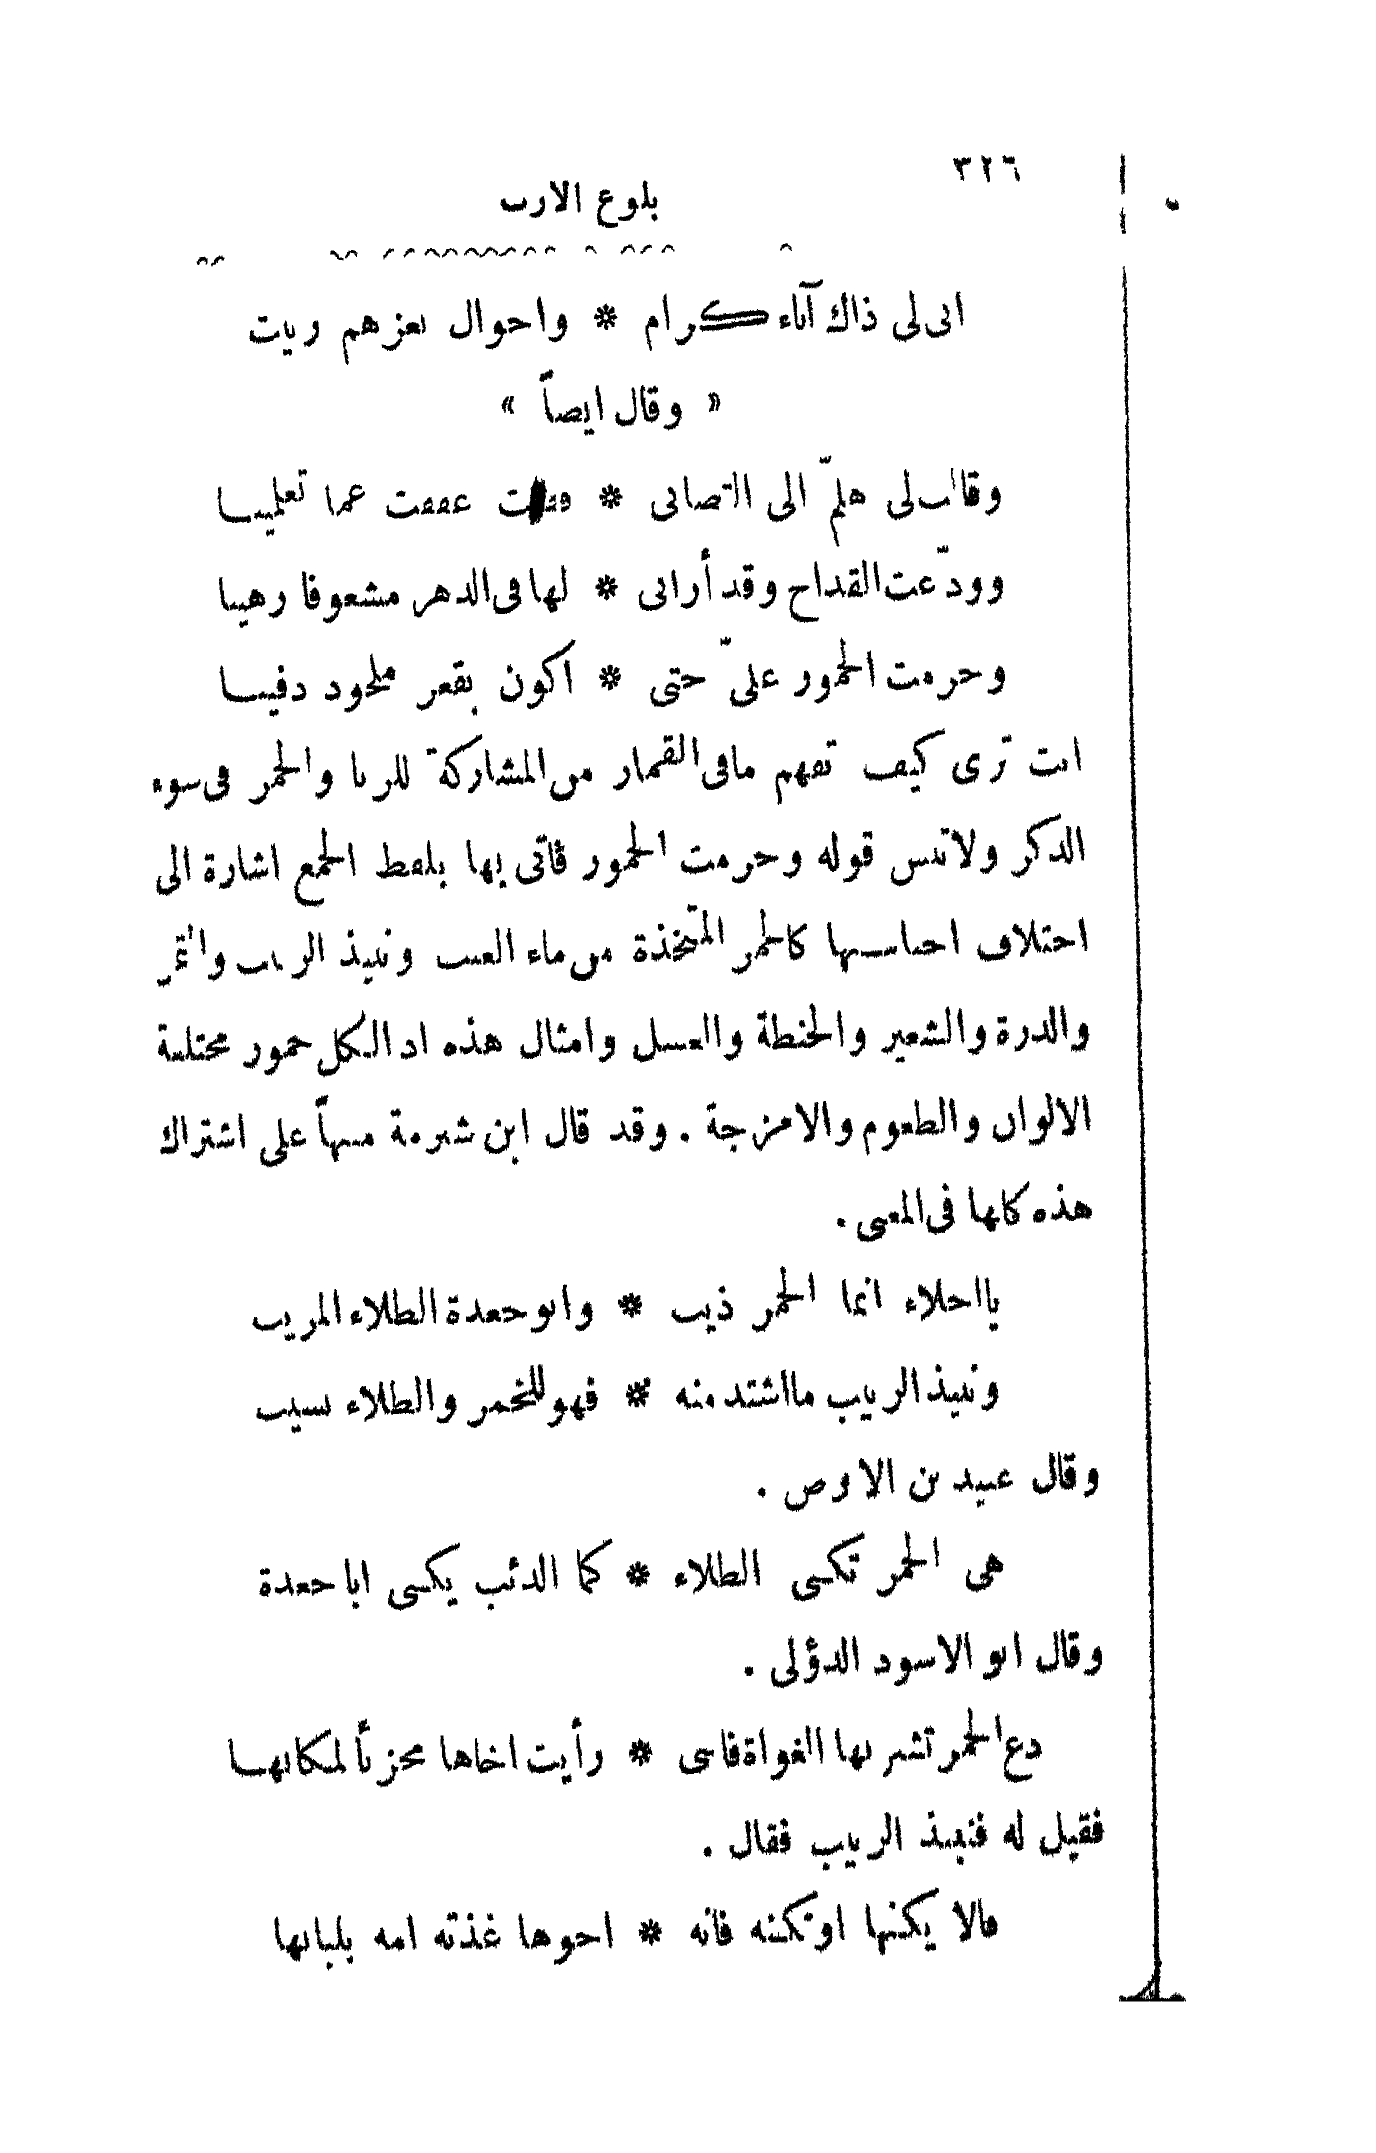 ٣٢٦
بلوغ الارب
ابى لى ذاك آباء كرام * واحوال بعزهم ربيت
« وقال ايضاً »
وقالت لى هلمّ الى التصابى * فقلت عففت عما تعلمينا
وودّعت القداح وقد أرانى * لها فى الدهر مشغوفا رهينا
وحرمت الخمور علىّ حتى * اكون بقعر ملحود دفينا
انت ترى كيف تفهم مافى القمار من المشاركة للزنا والخمر فى سوء
الذكر ولاتنس قوله وحرمت الخمور فأتى بها بلفظ الجمع اشارة الى
اختلاف اجناسها كالخمر المتخذة من ماء العنب ونبيذ الزبيب والتمر
والذرة والشعير والحنطة والعسل وامثال هذه اذ الكل خمور مختلفة
الالوان والطعوم والامزجة . وقد قال ابن شبرمة منبهاً على اشتراك
هذه كلها فى المعنى .
يااخلاء انما الخمر ذيب * وابو جعدة الطلاء المريب
ونبيذ الزبيب مااشتد منه * فهو للخمر والطلاء نسيب
وقال عبيد بن الابرص .
هى الخمر تكنى الطلاء * كما الذئب يكنى ابا جعدة
وقال ابو الاسود الدؤلى .
دع الخمر تشربها الغواة فاننى * رأيت اخاها مجزئاً لمكانها
فقيل له فنبيذ الزبيب فقال .
فالا يكنها او تكنه فانه * اخوها غذته امه بلبانها